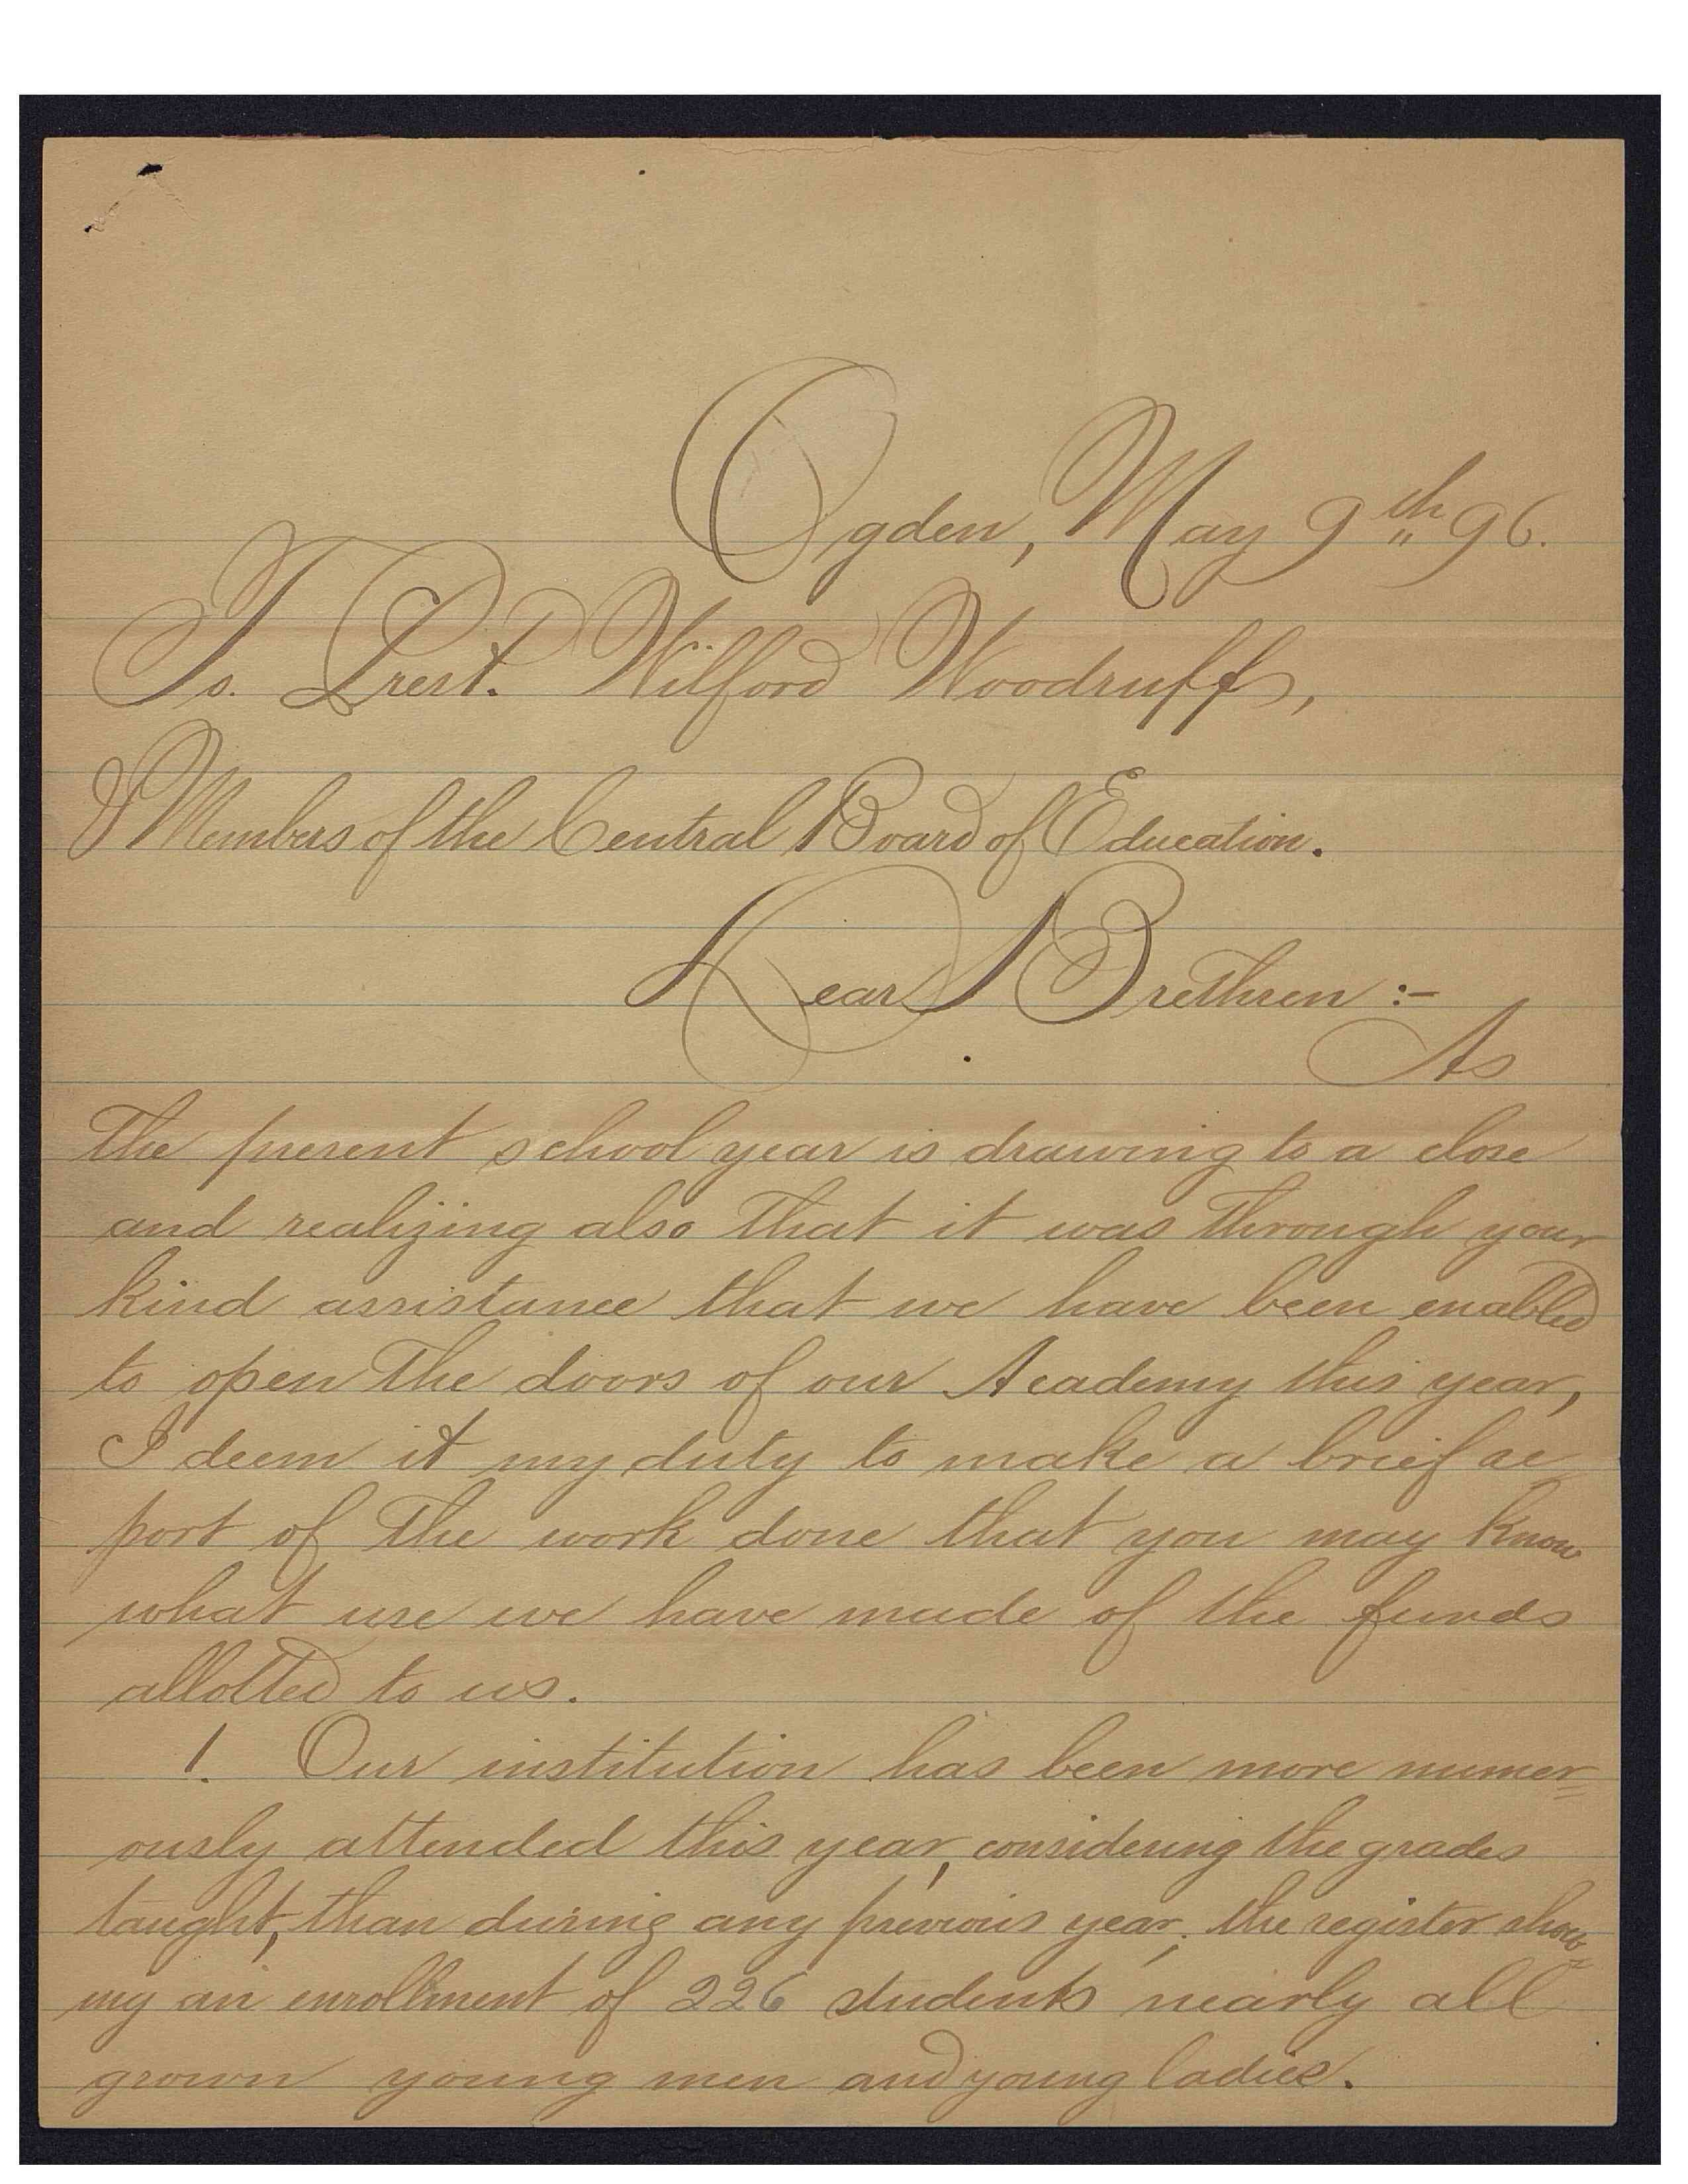 Ogden, May 9th 96.
To. Prest. Wilford Woodruff,
& Members of the Central Board of Education.
Dear Brethren :-
As
the present school year is drawing to a close
and realizing also that it was through your
kind assistance that we have been enabled
to open the doors of our Academy this year,
I deem it my duty to make a brief re
port of the work done that you may know
what use we have made of the funds
allotted to us.
1. Our institution has been more numer=
ously attended this year, considering the grades
taught, than during any previous year; the register show=
ing an enrollment of 226 students nearly all
grown young men and young ladies.